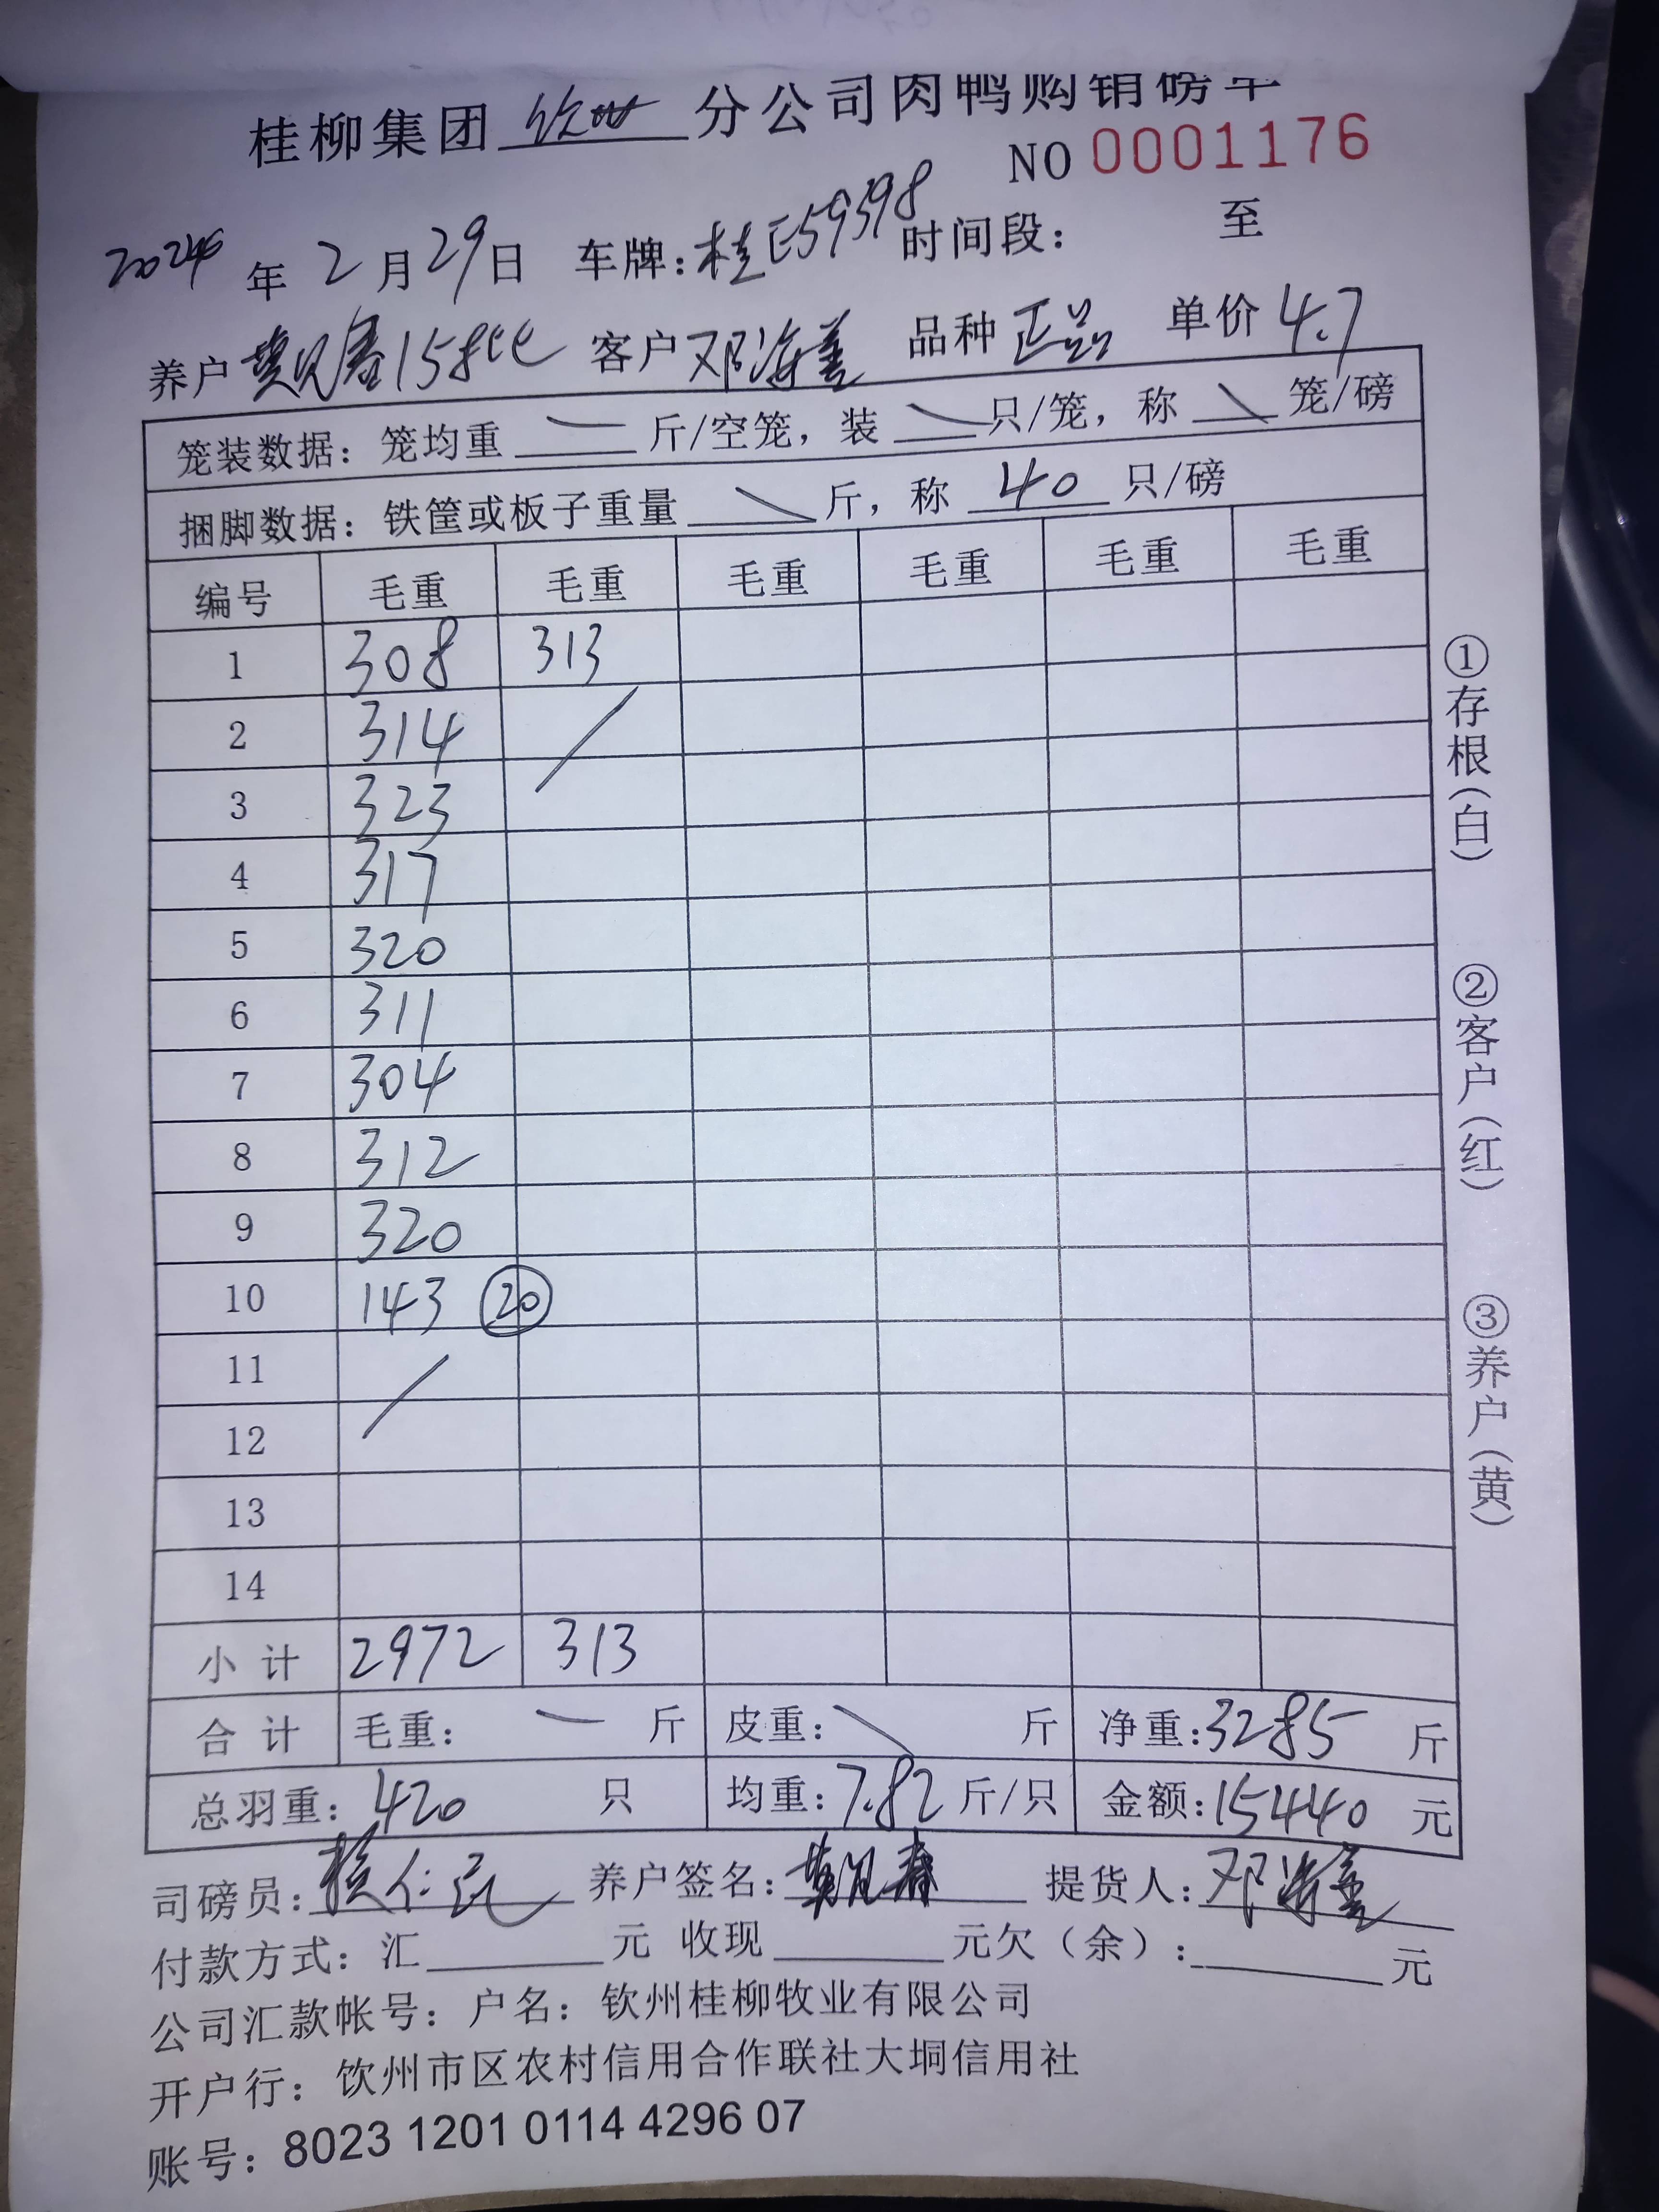 桂柳集团 钦州 分公司肉鸭购销磅单
NO 0001176
2024 年 2 月 29 日 车牌：桂E59398 时间段： 至
养户 莫见春158批 客户 邓海善 品种 正品 单价 4.7
笼装数据：笼均重 斤/空笼，装 只/笼，称 笼/磅
捆脚数据：铁筐或板子重量 斤，称 40 只/磅
编号 毛重 毛重 毛重 毛重 毛重 毛重
1 308 313
2 314
3 323
4 317
5 320
6 311
7 304
8 312
9 320
10 143 ⑳
11
12
13
14
小计 2972 313
合计 毛重： 斤 皮重： 斤 净重：3285 斤
总羽重：420 只 均重：7.82 斤/只 金额：15440 元
司磅员： 养户签名：莫见春 提货人：邓海善
付款方式：汇 元 收现 元欠（余）： 元
公司汇款帐号：户名：钦州桂柳牧业有限公司
开户行：钦州市区农村信用合作联社大垌信用社
账号：8023 1201 0114 4296 07
①存根（白）
②客户（红）
③养户（黄）